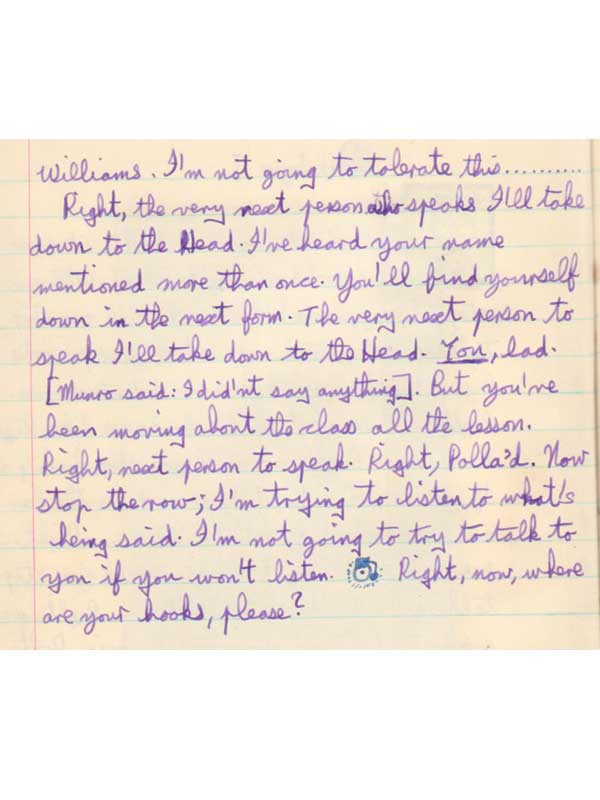 Williams. I'm not going to tolerate this..........
Right, the very next person who speaks I'll take
down to the Head. I've heard your name
mentioned more than once. You'll find yourself
down in the next form. The very next person to
speak I'll take down to the Head. You, lad.
[Munro said: I did'nt say anything]. But you've
been moving about the class all the lesson.
Right, next person to speak. Right, Polla'd. Now
stop the row; I'm trying to listen to what's
being said. I'm not going to try to talk to
you if you won't listen. Right, now, where
are your books, please?